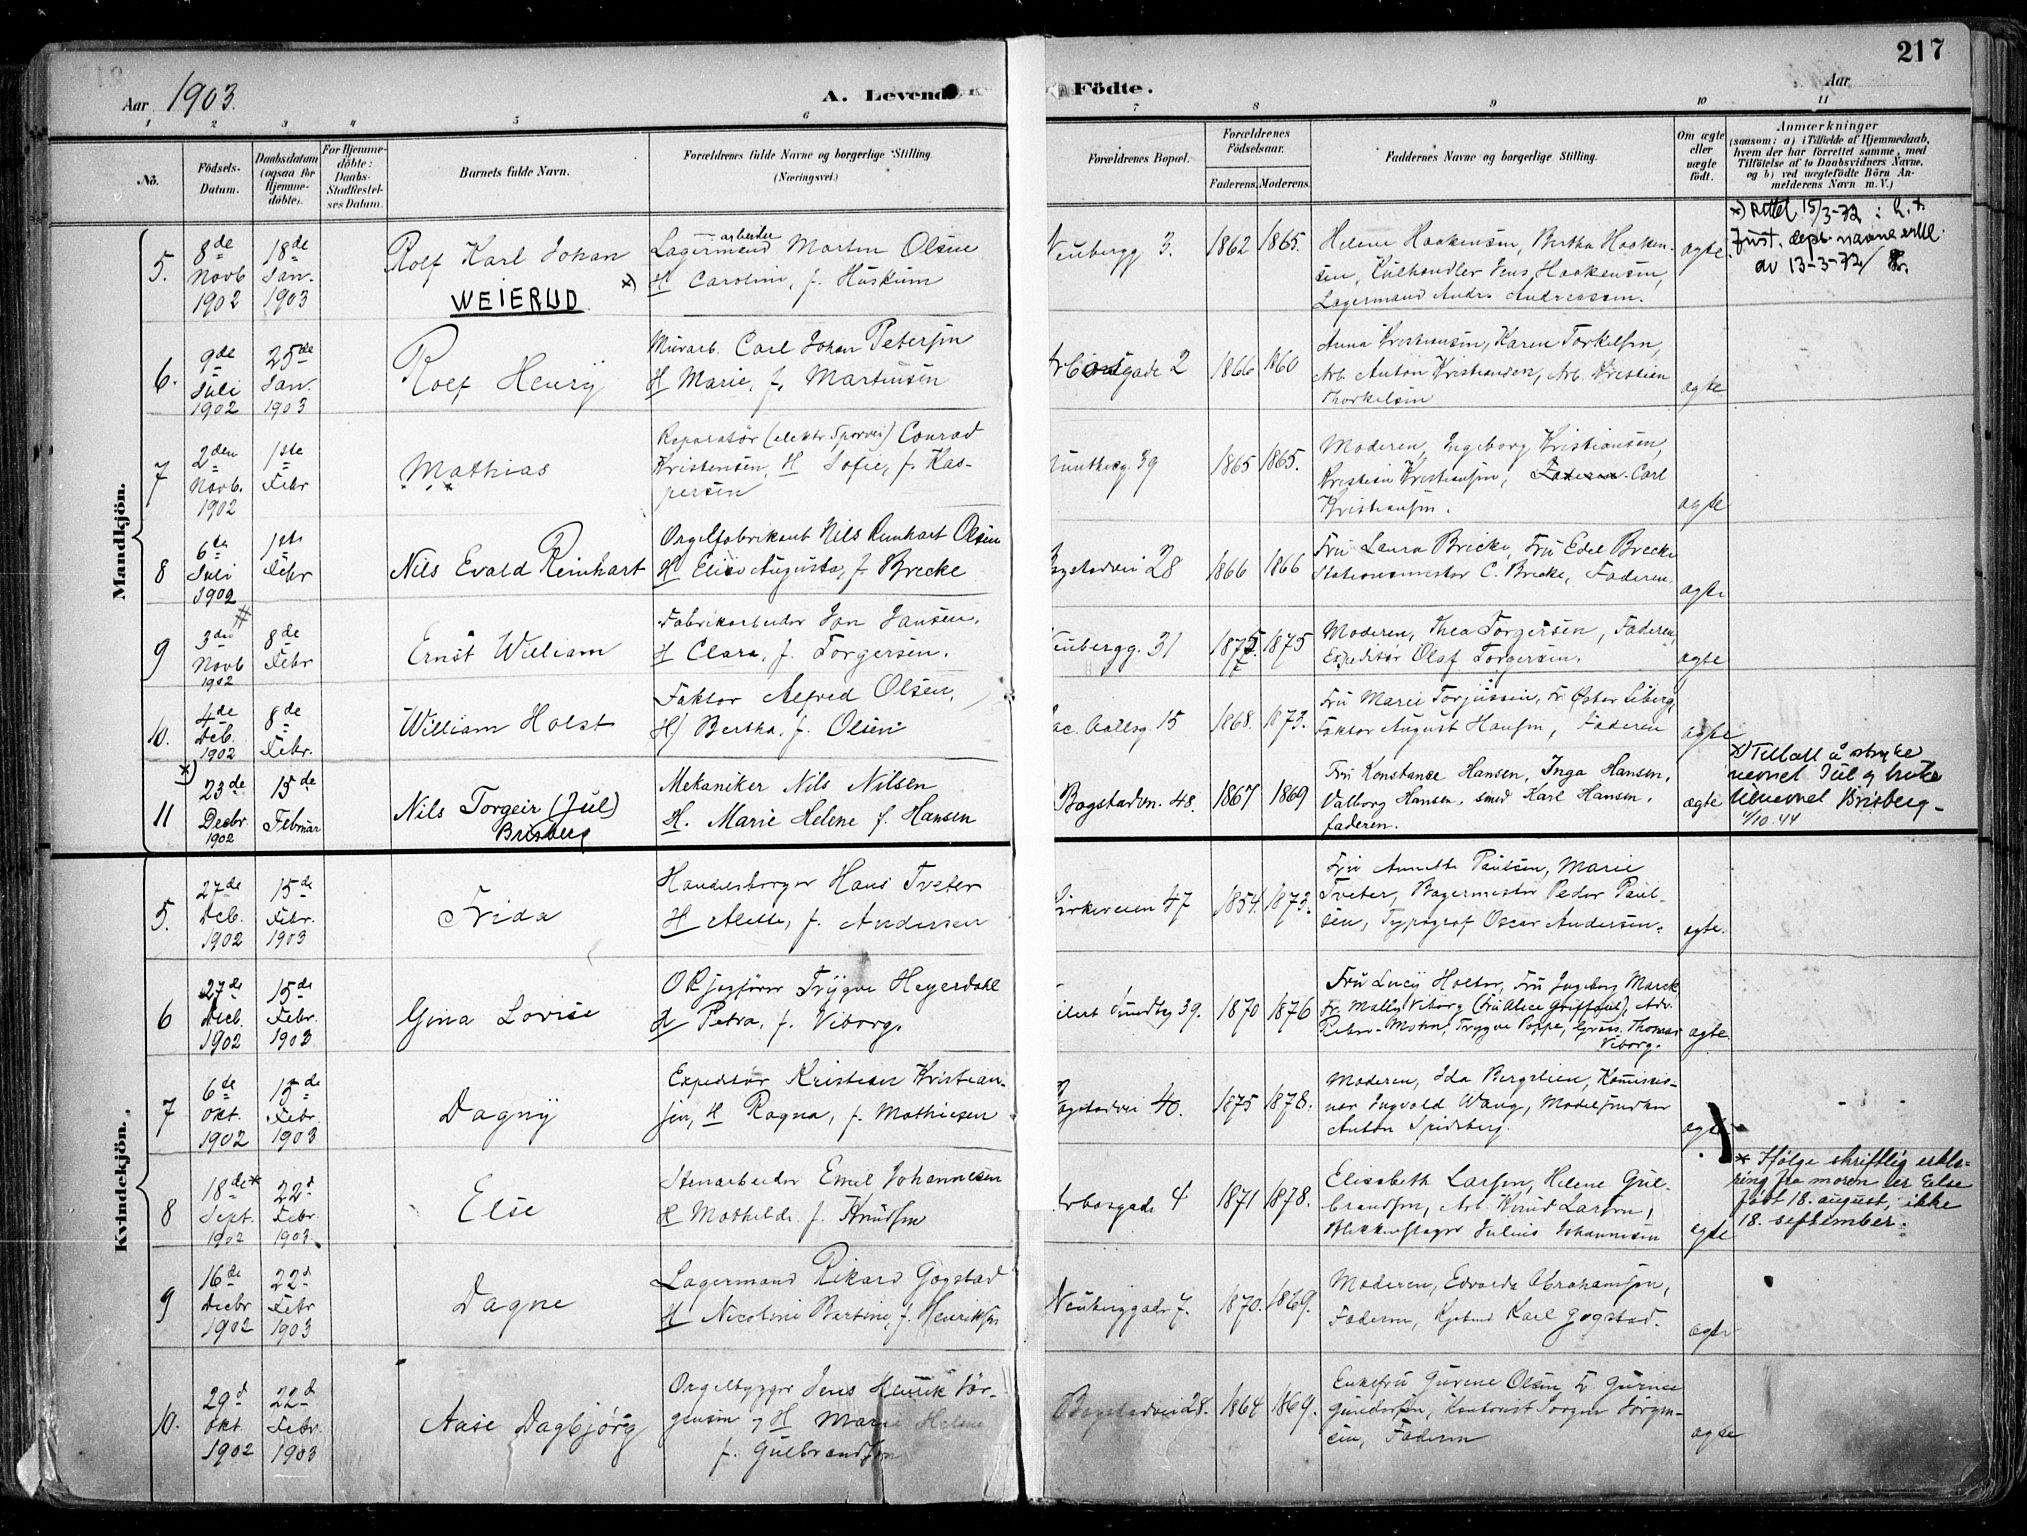 217
Aar 1903.
A. Levende Födte.
Aar
1 2 3 4 5 6 7 8 9 10 11
No.
Födsels-Datum.
Daabsdatum (ogsaa for Hjemme-döbte).
For Hjemme-döbte: Daabs-Stadfæstel-ses Datum.
Barnets fulde Navn.
Forældrenes fulde Navne og borgerlige Stilling.
(Næringsvei.)
Forældrenes Bopæl.
Forældrenes Födselsaar.
Faderens. Moderens.
Faddernes Navne og borgerlige Stilling.
Om ægte eller uægte födt.
Anmærkninger
(saasom: a) i Tilfælde af Hjemmedaab, hvem der har forrettet samme, med Tilföielse af to Daabsvidners Navne, og b) ved uægtefödte Börn Anmelderens Navn m. V.)
Mandkjön.
5. 8de Novb 1902
18de Jan. 1903
Rolf Karl Johan
WEIERUD x)
Lagermand arbeider Martin Olsen
H Caroline, f. Huskum
Neubergg 3.
1862 1865.
Helene Haakensen, Bertha Haaken-
sen, Kulhandler Jens Haakensen,
Lagermand Andrs Andreassen.
ægte
x) Rettet 15/3-72 : h.t.
Just. dept. navneerkl.
av 13-3-72
6. 9de Juli 1902
25de Jan. 1903
Rolf Henry
Murarb. Carl Johan Petersen
H Marie, f. Martinsen
gade 2
1866 1860
Anna Kristiansen, Karen Torkelsen,
Arb. Anton Kristiansen, Arb. Kristian
Thorkelsen
ægte
7 2den Novb. 1902
1ste Febr
Mathias
Reparatør (elektr Sporvei) Conrad
Kristensen, H Sofie, f. Kas-
persen
39
1865 1865.
Moderen, Ingeborg Kristiansen,
Kristian Kristiansen, Faderen. Carl
Kristiansen.
ægte
8 6te Juli 1902
1ste Febr
Nils Evald Reinhart
Orgelfabrikant Nils Reinhart Olsen
H Elise Augusta, f. Brecke
Bogstadvei 28
1866 1866
Fru Laura Brecke, Fru Edel Brecke
Stationsmester C. Brecke, Faderen
ægte
9 3die Novb 1902
8de Febr
Ernst William
Fabrikarbeider Jon Jansen,
H Clara, f. Torgersen.
Neubergg. 31
1875 1875
Moderen, Thea Torgersen, Faderen,
Expeditør Olaf Torgersen.
ægte
10. 4de Dcb. 1902
8de Febr.
William Holst
Faktor Alfred Olsen,
H) Bertha, f. Olsen
Jac. Aallsg. 15
1868. 1873.
Fru Marie Torjussen, Fr Øster Liberg,
Faktor August Hansen, Faderen
ægte
11 x) 23de Decbr. 1902
15de Februar
Nils Torgeir (Jul)
Brisberg
Mekaniker Nils Nilsen
H. Marie Helene f. Hansen
Bogstadvn. 48.
1867 1869
Fru Konstance Hansen, Inga Hansen,
Valborg Hansen, smed Karl Hansen,
faderen.
ægte
x) Tillatt å stryke
navnet Jul og bruke
tilnavnet Brisberg -
1/10.44
Kvindekjön.
5. 27de Dcb. 1902
15de Febr. 1903
Frida
Handelsborger Hans Tveter
H Alette, f. Andersen
Kirkeveien 47
1854. 1873.
Fru Annette Paulsen, Marie
Tveter, Bagermester Peder Paul-
sen, Typograf Oscar Andersen.
ægte.
6 27de Dcb. 1902
15de Febr. 1903
Gina Lovise
O R Jagfører Trygve Heyerdahl
H Petra, f. Viborg.
Eilert Sundtsg 39.
1870 1876
Fru Lucy Holter, Fru Ingeborg Marck
Fr. Mally Viborg (Fru Alice Griffoul), Adv.
Peter Mohn, Trygve Poppe, Gross. Thomas
Viborg.
ægte.
7 6de Okt. 1902
15de Febr. 1903
Dagny
Expeditør Kristian Kristian-
sen, H Ragna, f. Mathiesen
Bogstadvei 40.
1875 1878.
Moderen, Ida Bergslien, Kommissio-
nær Ingvald Wang, Modelsnedker
Anton Spidsberg.
ægte
8 18de* Sept. 1902
22d Febr. 1903.
Else
Stenarbeider Emil Johannesen
H Mathilde f. Knudsen
Arbosgade 4
1871 1878.
Elisabeth Larsen, Helene Gul-
brandsen, Arb. Knud Larsen,
Blikkenslager Julius Johannesen
ægte
* Ifølge skriftlig erklæ-
ring fra moren er Else
født 18. august, ikke
18. september.
9 16de Decbr 1902
22d Febr 1903
Dagne
Lagermand Rikard Gogstad
H Nicoline Bertine, f. Henriksen
Neuberggade 7.
1870. 1869.
Moderen, Edvarda Abrahamsen,
Faderen, Karl Gogstad.
ægte
10. 29d Okt. 1902
22d Febr. 1903
Aase Dagbjørg
Orgelbygger Jens Henrik Jør-
gensen og H Marie Helene
f. Gulbrandsen
Bogstadvei 28.
1864 1869.
Enkefru Gurene Olsen, Fr. Gurine
Gundersen, Kontorist Jørgen Jørgen-
sen, Faderen
ægte